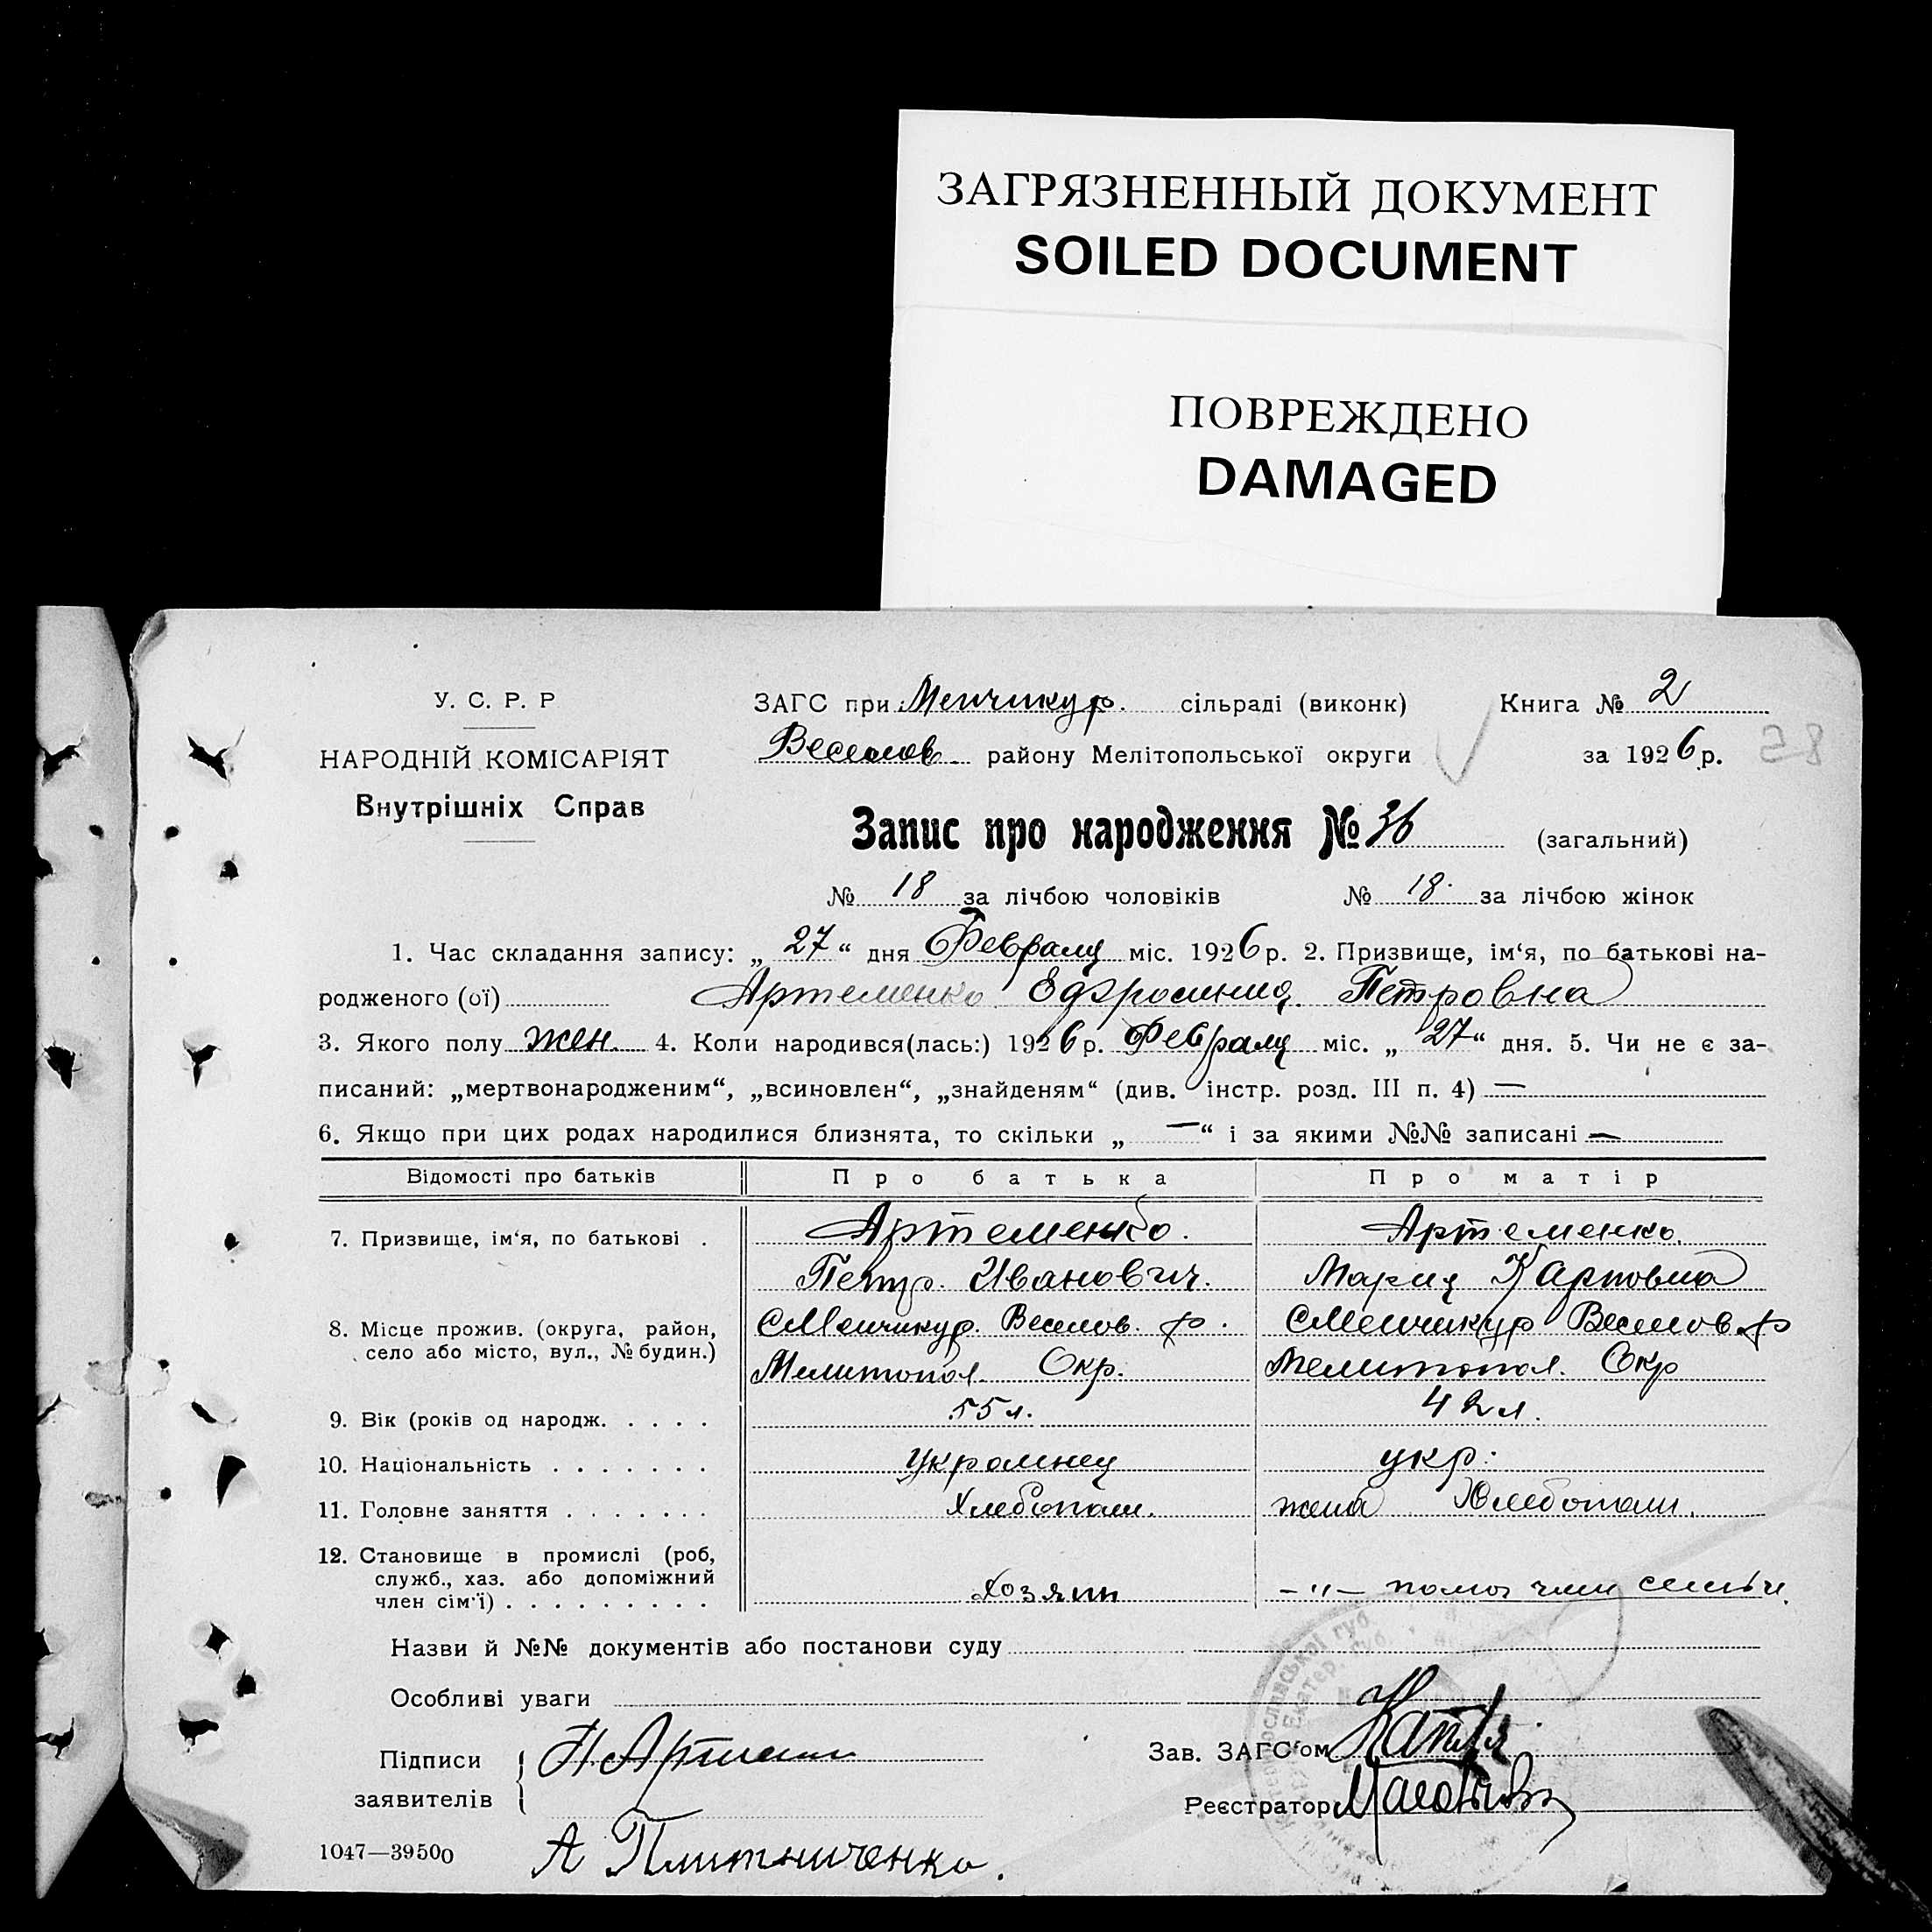 ЗАГРЯЗНЕННЫЙ ДОКУМЕНТ
SOILED DOCUMENT
ПОВРЕЖДЕНО
DAMAGED
У. С. Р. Р
НАРОДНІЙ КОМІСАРІЯТ
Внутрішніх Справ
ЗАГС при Менчикур. сільраді (виконк)
Веселов. району Мелітопольської округи
Книга № 2
за 1926 р.
58
Запис про народження № 36 (загальний)
№ 18 за лічбою чоловіків № 18. за лічбою жінок
1. Час складання запису: „ 27 “ дня Февраля міс. 1926 р. 2. Призвище, ім‘я, по батькові на-
родженого (ої) Артеменко Ефросиния Петровна
3. Якого полу жен. 4. Коли народився(лась:) 1926 р. Февраля міс. „ 27 “ дня. 5. Чи не є за-
писаний: „мертвонародженим“, „всиновлен“, „знайденям“ (див. інстр. розд. III п. 4) —
6. Якщо при цих родах народилися близнята, то скільки „ — “ і за якими №№ записані —
Відомості про батьків Про батька Про матір
7. Призвище, ім‘я, по батькові . Артеменко. Артеменко.
Петр. Иванович. Мария Карповна
8. Місце прожив. (округа, район, село або місто, вул., № будин.) С Менчикур. Веселов. р. С Менчикур Веселов р
Мелитопол. Окр. Мелитопол. Окр
9. Вік (років од народж. . . . . 55 л. 42 л.
10. Національність . . . . . . . Украинец укр:
11. Головне заняття . . . . . . . Хлебопаш. жена Хлебопаш.
12. Становище в промислі (роб, служб., хаз. або допоміжний член сім‘ї) . . . . . . . . . Хозяин -"- помог член семьи.
Назви й №№ документів або постанови суду
Особливі уваги
Підписи
заявителів
Зав. ЗАГС‘ом
Реєстратор
1047—39500
А Плитниченко.